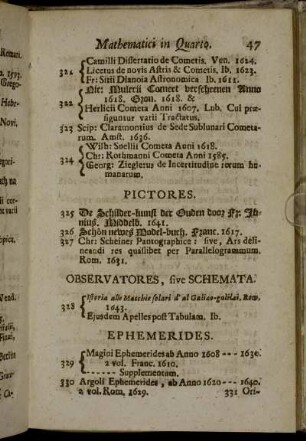 Mathematici in Quarto. 47
Camilli Dissertatio de Cometis, Ven. 1624.
321 Licetus de novis Astris & Cometis, Ib. 1623.
Fr: Sitii Dianoia Astronomica Ib. 1611.
Nic: Mulerii Comeet verschenen Anno
1618. Gron. 1618. &
322 Herlicii Cometa Anni 1607. Lub. Cui præ-
figuntur varii Tractatus.
323 Scip: Claramontius de Sede Sublunari Cometa-
rum. Amst. 1636.
Wilh: Snellii Cometa Anni 1618.
324 Chr: Rothmanni Cometa Anni 1585.
Georg: Zieglerus de Incertitudine rerum hu-
manarum.
PICTORES.
325 De Schilder-kunst der Ouden door Fr: Ju-
nius, Middelb. 1641.
326 Schön newes Model-buch, Franc. 1617.
327 Chr: Scheiner Pantographice: sive, Ars deli-
neandi res quaslibet per Parallelogrammum.
Rom. 1631.
OBSERVATORES, sive SCHEMATA.
Istoria alle Macchie solari d'al Galileo-galilei, Rom.
328 1643.
Ejusdem Apelles post Tabulam. Ib.
EPHEMERIDES.
Magini Ephemerides ab Anno 1608 --- 1630.
329 2 vol. Franc. 1610.
------ Supplementum.
330 Argoli Ephemerides, ab Anno 1620 --- 1640.
2 vol. Rom. 1629. 331 Ori-